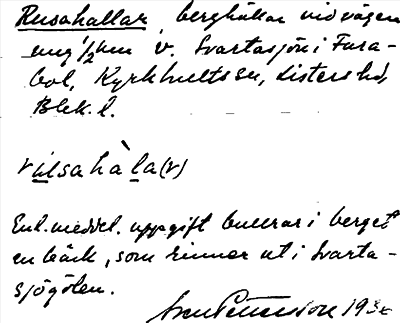 Rusahallar, berghällar vid vägen
ung 1/2 km v. Svartasjön i Fura-
bol, Kyrkhults sn, Listers hd,
Blek. l.
rusahàla(r)
Enl. meddel. uppgift bullrar i berget
en bäck, som rinner ut i Svarta-
sjögölen.
Sven Pettersson 193